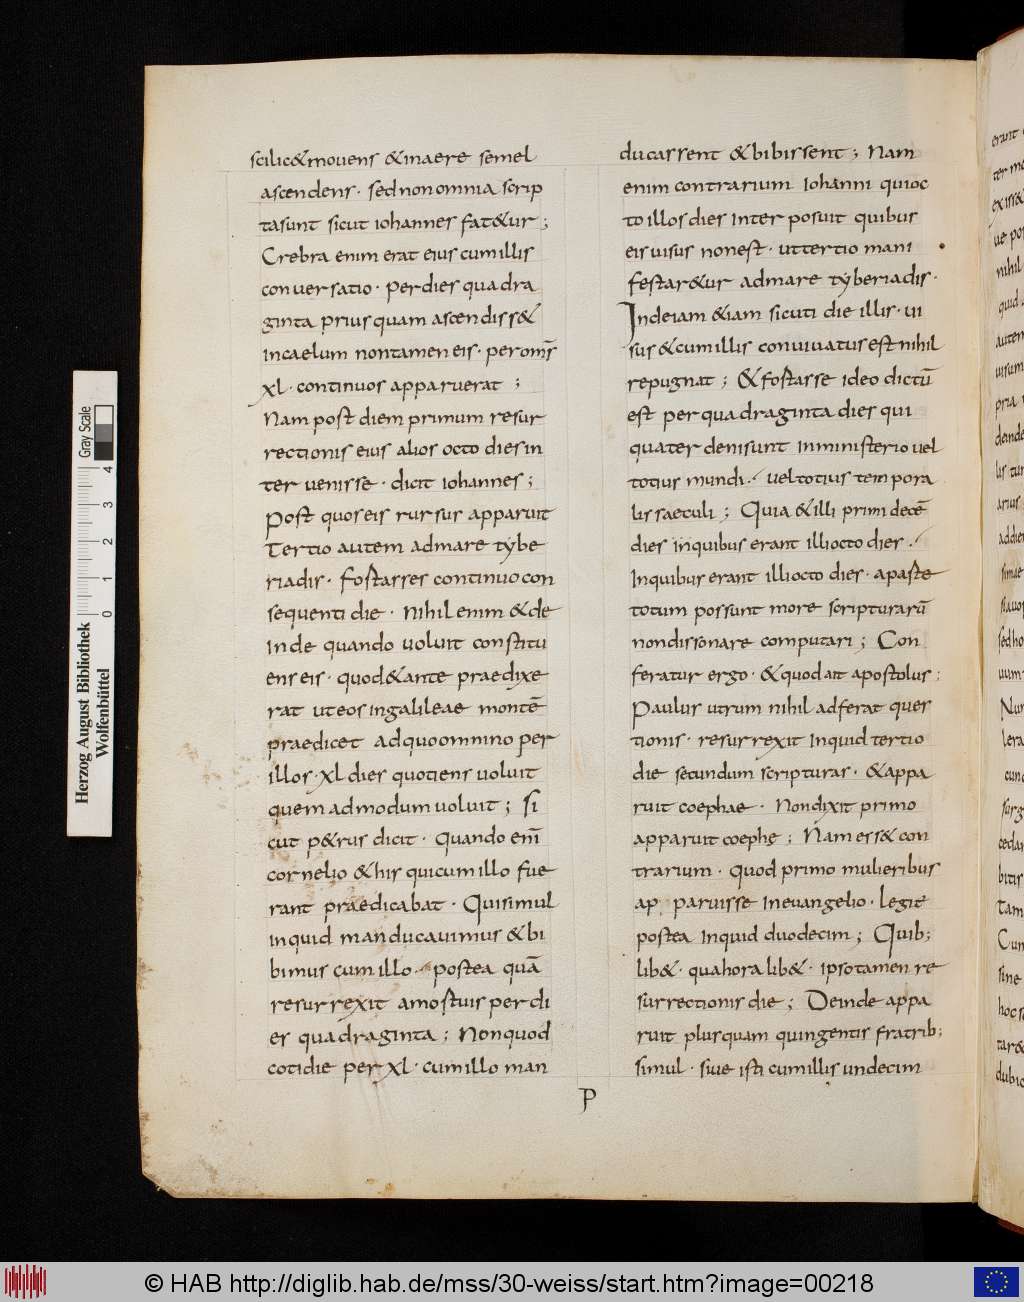 scilic&movens &inaere semel
ascendens · sed non omnia scrip
ta sunt sicut iohannes fat&ur ;
Crebra enim erat eius cum illis
conversatio · per dies quadra
ginta prius quam ascendiss&
in caelum non tamen eis · per omēs
xl · continuos apparuerat ;
Nam post diem primum resur
rectionis eius alios octo dies in
ter venisse · dicit iohannes ;
Post quos eis rursus apparuit
Tertio autem ad mare tybe
riadis · fostasses continuo con
sequenti die · Nihil enim & de
inde quando voluit constitu
ens eis · quod & ante praedixe
rat ut eos in galileae montē
praedicet ad quo omnino per
illos · xl dies quotiens voluit
quem ad modum voluit ; Si
cut p&rus dicit · Quando eni
cornelio & his qui cum illo fue
rant praedicabat · Qui simul
inquid manducavimus & bi
bimus cum illo · postea quā
resurrexit a mostuis per di
es quadraginta ; Non quod
cotidie per xl · cum illo man
ducassent & bibissent ; Nam
enim contrarium Iohanni qui oc
to illos dies inter posuit quibus
eis visus non est · ut tertio mani
festar&ur ad mare tyberiadis ·
Inde iam &iam sicuti die illis · vi
sus & cum illis convivatus est nihil
repugnat ; & fostasse ideo dictū
est per quadraginta dies qui
quater deni sunt in ministerio vel
totius mundi · vel totius tempora
lis saeculi ; Quia & illi primi decē
dies in quibus erant illi octo dies ·
In quibus erant illi octo dies · a paste
totum possunt more scripturarū
non dissonare computari ; Con
feratur ergo · & quod ait apostolus :
Paulus utrum nihil adferat ques
tionis · resurrexit inquid tertio
die secundum scripturas · & appa
ruit coephae · Non dixit primo
apparuit coephę ; Nam ess& con
trarium · Quod primo mulieribus
ap paruisse in evangelio · legit
postea inquid duodecim ; Quib;
lib& · qua hora lib& · ipso tamen re
surrectionis die ; Deinde appa
ruit plus quam quingentis fratrib;
simul · sive isti cum illis undecim
P
erunt
nihil
quid
autem
visum
pria
deinde
arius
simae
sed ho
Nun
lera
surg
bitis
Tam
Cum
sine
tur&
dubic
Herzog August Bibliothek
Wolfenbüttel
0 1 2 3 4
Gray Scale
© HAB http://diglib.hab.de/mss/30-weiss/start.htm?image=00218